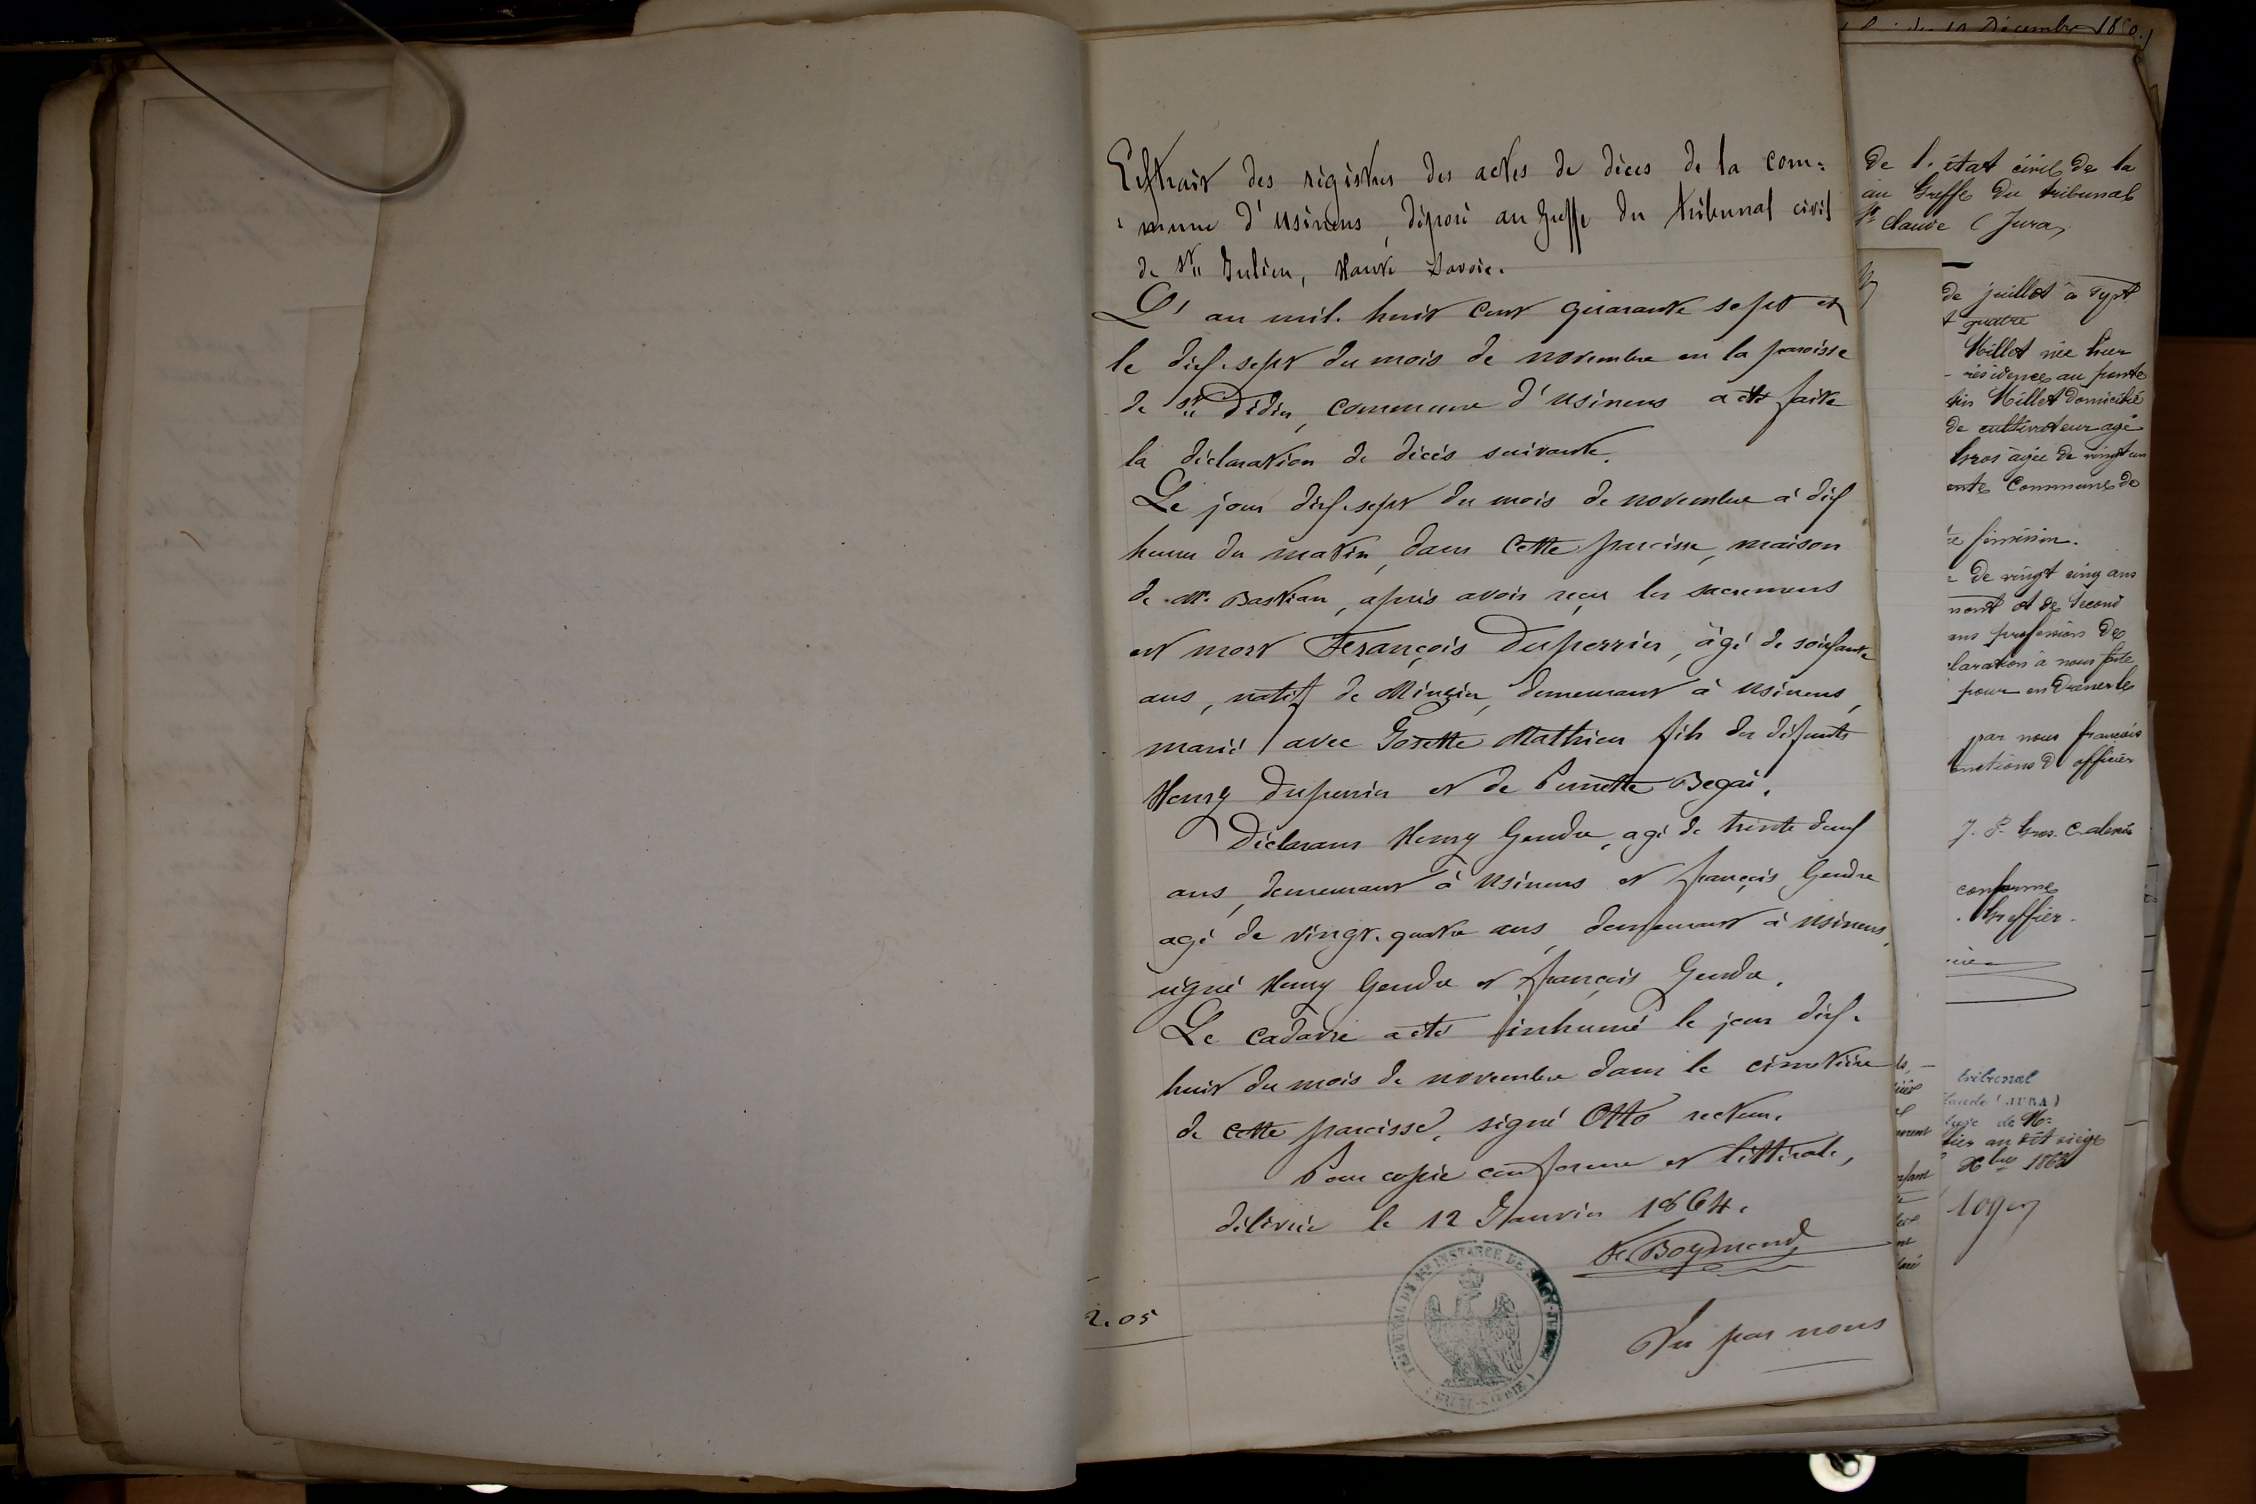 Extrait des régistres des actes de décès de la com=
=mune d'Usinens, déposé au Greffe du tribunal civil
de St Julien, Haute Savoie.
L'an mil huit cent quarante sept et
le dix-sept du mois de novembre en la paroisse
de St Didier, commune d'Usinens a été faite
la déclaration de décès suivante.
Le jour dix-sept du mois de novembre à dix
heures du matin, dans cette paroisse, maison
de Mr. Bastian, après avoir reçu les sacremens
est mort François Duperrier, âgé de soixante
ans, natif de Minzier, demeurant à Usinens,
marié avec Josette Mathieu fils des défunts
Henry Duperrier et de Pernette Begai.
Déclarans Henry Gendre, agé de trente deux
ans, demeurant à Usinens et françois Gendre
agé de vingt-quatre ans, demeurant à Usinens,
signé Henry Gendre et françois Gendre.
Le cadavre a été inhumé le jour dix-
huit du mois de novembre dans le cimetière
de cette paroisse, signé Otto recteur.
Pour copie conforme et littérale,
délivrée le 12 Janvier 1864.
Boymond
2.05
TRIBUNAL DE 1re INSTANCE DE ST-JULIEN
(HAUTE-SAVOIE)
Vu par nous
Décembre
de l'état civil de la
au Greffe du tribunal
St Claude (Jura)
de juillet à sept
t quatre
Millet née hier
résidence au
Millet domicilié
de cultivateur agé
Gros agée de vingt un
Commune de
féminin.
de vingt cinq ans
et de second
ans profession de
laration à nous faite
pour en
par nous françois
onctions d'officier
J. P. Gros
conforme
Greffier.
tribunal
Claude (JURA)
de Mr
au dit siège
Xbre
Roger